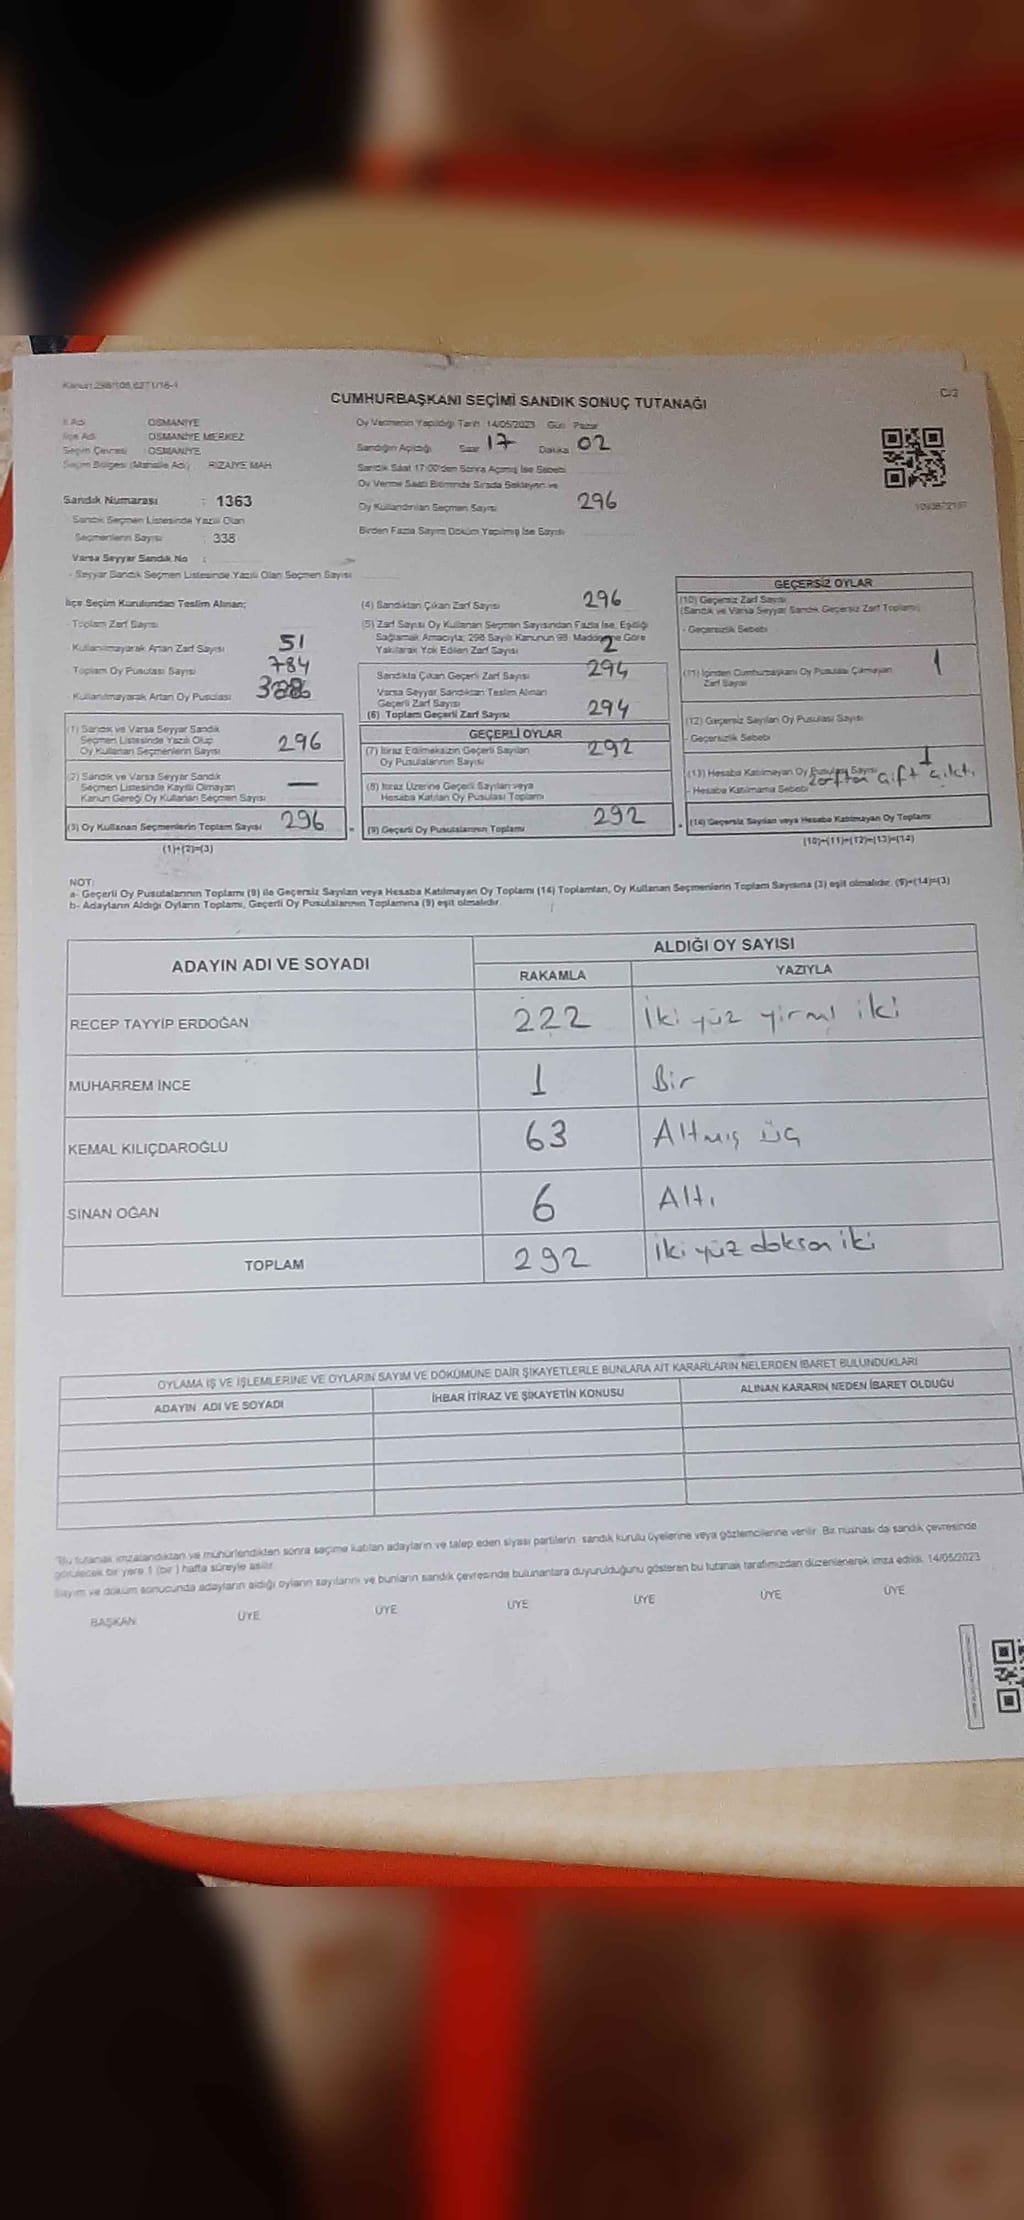 Kanun:298/105,6271/16-1
C/2
CUMHURBAŞKANI SEÇİMİ SANDIK SONUÇ TUTANAĞI
İl Adı OSMANİYE
İlçe Adı OSMANİYE MERKEZ
Seçim Çevresi : OSMANİYE
Seçim Bölgesi (Mahalle Adı) : RIZAİYE MAH
Sandık Numarası : 1363
Sandık Seçmen Listesinde Yazılı Olan
Seçmenlerin Sayısı : 338
Varsa Seyyar Sandık No :
- Seyyar Sandık Seçmen Listesinde Yazılı Olan Seçmen Sayısı
Oy Vermenin Yapıldığı Tarih 14/05/2023 Gün Pazar
Sandığın Açıldığı Saat 17 Dakika 02
Sandık Saat 17:00'den Sonra Açılmış İse Sebebi
Oy Verme Saati Bitiminde Sırada Bekleyen ve
Oy Kullandırılan Seçmen Sayısı 296
Birden Fazla Sayım Döküm Yapılmış İse Sayısı
İlçe Seçim Kurulundan Teslim Alınan;
- Toplam Zarf Sayısı
- Kullanılmayarak Artan Zarf Sayısı 51
Toplam Oy Pusulası Sayısı 784
- Kullanılmayarak Artan Oy Pusulası
(1) Sandık ve Varsa Seyyar Sandık
Seçmen Listesinde Yazılı Olup
Oy Kullanan Seçmenlerin Sayısı 296
(2) Sandık ve Varsa Seyyar Sandık
Seçmen Listesinde Kayıtlı Olmayan
Kanun Gereği Oy Kullanan Seçmen Sayısı —
(3) Oy Kullanan Seçmenlerin Toplam Sayısı 296
(1)+(2)=(3)
(4) Sandıktan Çıkan Zarf Sayısı 296
(5) Zarf Sayısı Oy Kullanan Seçmen Sayısından Fazla İse, Eşitliği
Sağlamak Amacıyla; 298 Sayılı Kanunun 98. Maddesine Göre
Yakılarak Yok Edilen Zarf Sayısı 2
Sandıkta Çıkan Geçerli Zarf Sayısı 294
Varsa Seyyar Sandıktan Teslim Alınan
Geçerli Zarf Sayısı
(6) Toplam Geçerli Zarf Sayısı 294
GEÇERLİ OYLAR
(7) İtiraz Edilmeksizin Geçerli Sayılan
Oy Pusulalarının Sayısı 292
(8) İtiraz Üzerine Geçerli Sayılan veya
Hesaba Katılan Oy Pusulası Toplamı
(9) Geçerli Oy Pusulalarının Toplamı 292
GEÇERSİZ OYLAR
(10) Geçersiz Zarf Sayısı
(Sandık ve Varsa Seyyar Sandık Geçersiz Zarf Toplamı)
- Geçersizlik Sebebi
(11) İçinden Cumhurbaşkanı Oy Pusulası Çıkmayan
Zarf Sayısı 1
(12) Geçersiz Sayılan Oy Pusulası Sayısı
- Geçersizlik Sebebi
(13) Hesaba Katılmayan Oy Pusulası Sayısı 1
- Hesaba Katılmama Sebebi Zarftan çift çıktı
(14) Geçersiz Sayılan veya Hesaba Katılmayan Oy Toplamı
(10)+(11)+(12)+(13)=(14)
NOT:
a- Geçerli Oy Pusulalarının Toplamı (9) ile Geçersiz Sayılan veya Hesaba Katılmayan Oy Toplamı (14) Toplamları, Oy Kullanan Seçmenlerin Toplam Sayısına (3) eşit olmalıdır. (9)+(14)=(3)
b- Adayların Aldığı Oyların Toplamı, Geçerli Oy Pusulalarının Toplamına (9) eşit olmalıdır.
ADAYIN ADI VE SOYADI ALDIĞI OY SAYISI
RAKAMLA YAZIYLA
RECEP TAYYİP ERDOĞAN 222 İki yüz yirmi iki
MUHARREM İNCE 1 Bir
KEMAL KILIÇDAROĞLU 63 Altmış üç
SİNAN OĞAN 6 Altı
TOPLAM 292 İki yüz doksan iki
OYLAMA İŞ VE İŞLEMLERİNE VE OYLARIN SAYIM VE DÖKÜMÜNE DAİR ŞİKAYETLERLE BUNLARA AİT KARARLARIN NELERDEN İBARET BULUNDUKLARI
ADAYIN ADI VE SOYADI İHBAR İTİRAZ VE ŞİKAYETİN KONUSU ALINAN KARARIN NEDEN İBARET OLDUĞU
"Bu tutanak imzalandıktan ve mühürlendikten sonra seçime katılan adayların ve talep eden siyasi partilerin sandık kurulu üyelerine veya gözlemcilerine verilir. Bir nüshası da sandık çevresinde
görülecek bir yere 1 (bir ) hafta süreyle asılır.
Sayım ve döküm sonucunda adayların aldığı oyların sayılarını ve bunların sandık çevresinde bulunanlara duyurulduğunu gösteren bu tutanak tarafımızdan düzenlenerek imza edildi. 14/05/2023
BAŞKAN ÜYE ÜYE ÜYE ÜYE ÜYE ÜYE